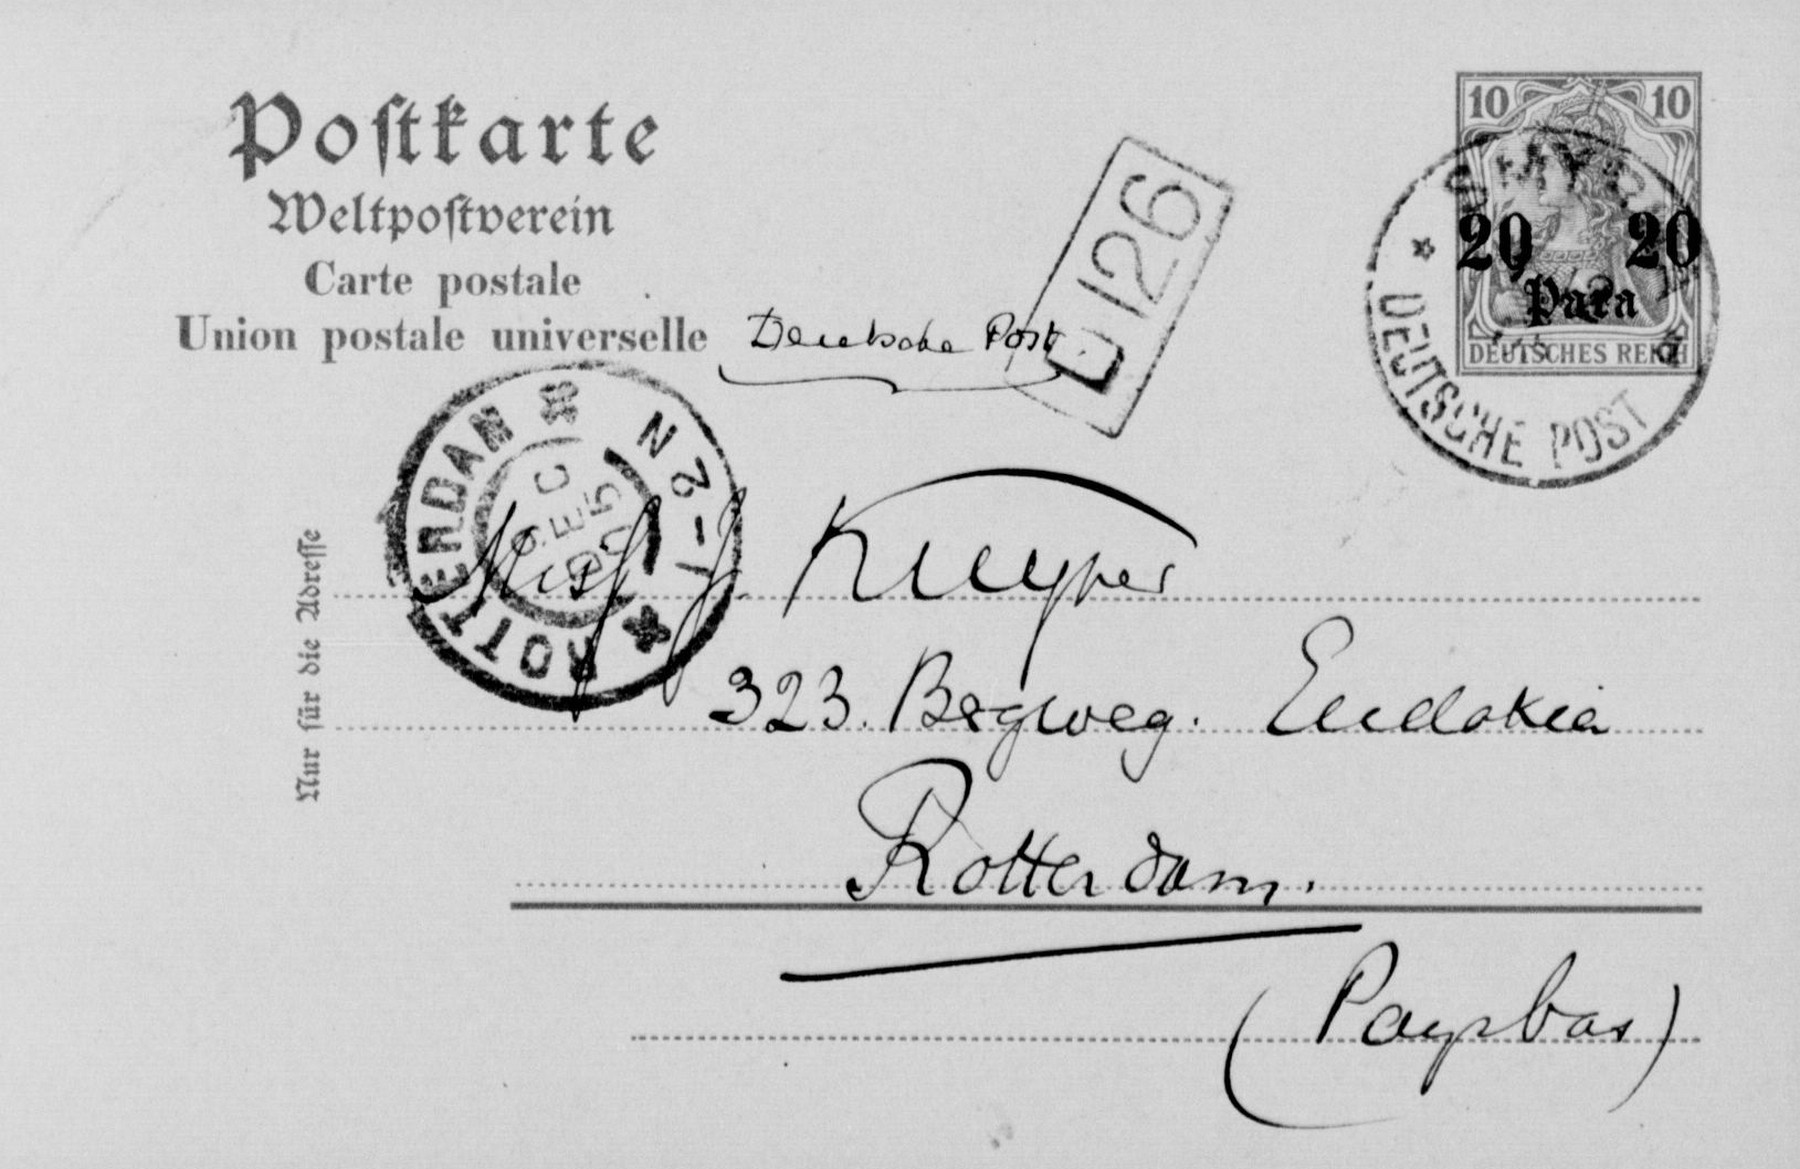 Postkarte
Weltpostverein
Carte postale
Union postale universelle
Deutsche Post
126
10 10
20 20
Para
DEUTSCHES REICH
SMYRNA
DEUTSCHE POST
ROTTERDAM
1-2N
DEC
05
Nur für die Adresse
Miss J. Kuyper
323. Bergweg. Eudokia
Rotterdam.
(Paysbas)